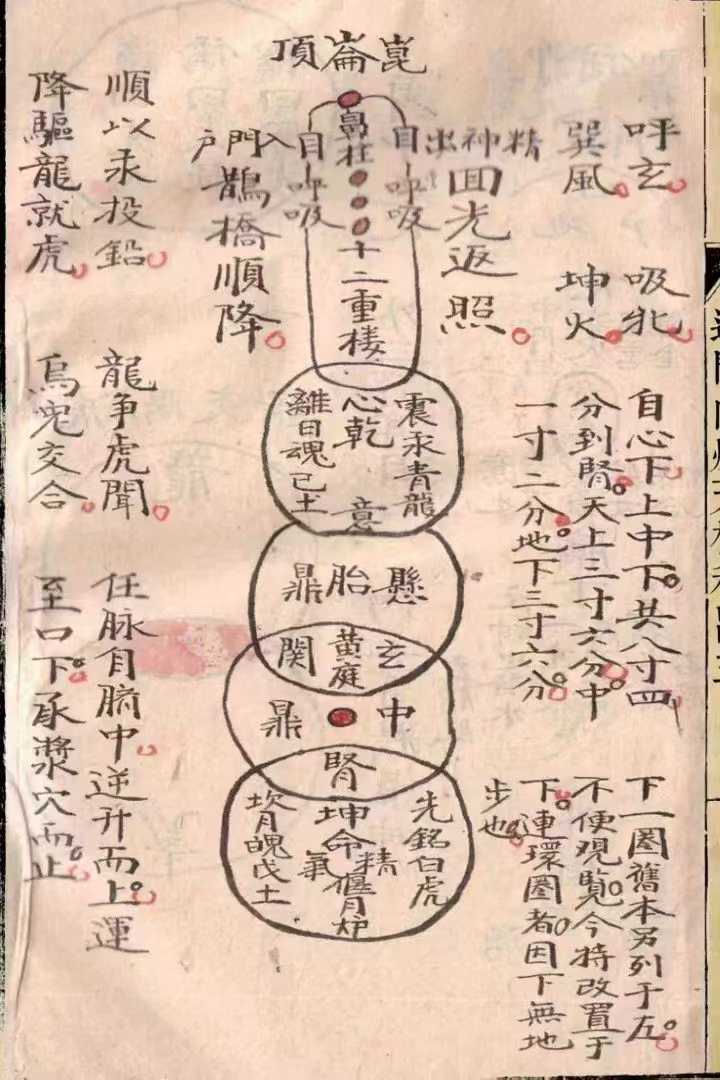 崑崙頂
呼玄。
巽風。
吸牝。
坤火。
精神出
自呼吸
回光返照。
鼻柱
十二重楼
自呼吸
入門户
鵲橋順降。
順以汞投鉛。
降驅龍就虎。
震汞青龍
心乾
意
離日魂己土
自心下上中下。共八寸四
分到腎。天上三寸六分。中
一寸二分。地下三寸六分。
龍争虎聞。
烏兎交合。
懸胎鼎
玄
黄庭
関
中
鼎
任脉自臍中。逆升而上。運
至口下。承漿穴而止。
腎
坤命
精
氣
偃月炉
先銘白虎
坎月魄戊土
下一圈舊本另列于左。
不便观覧。今特改置于
下。連環圈者。因下無地
步也。